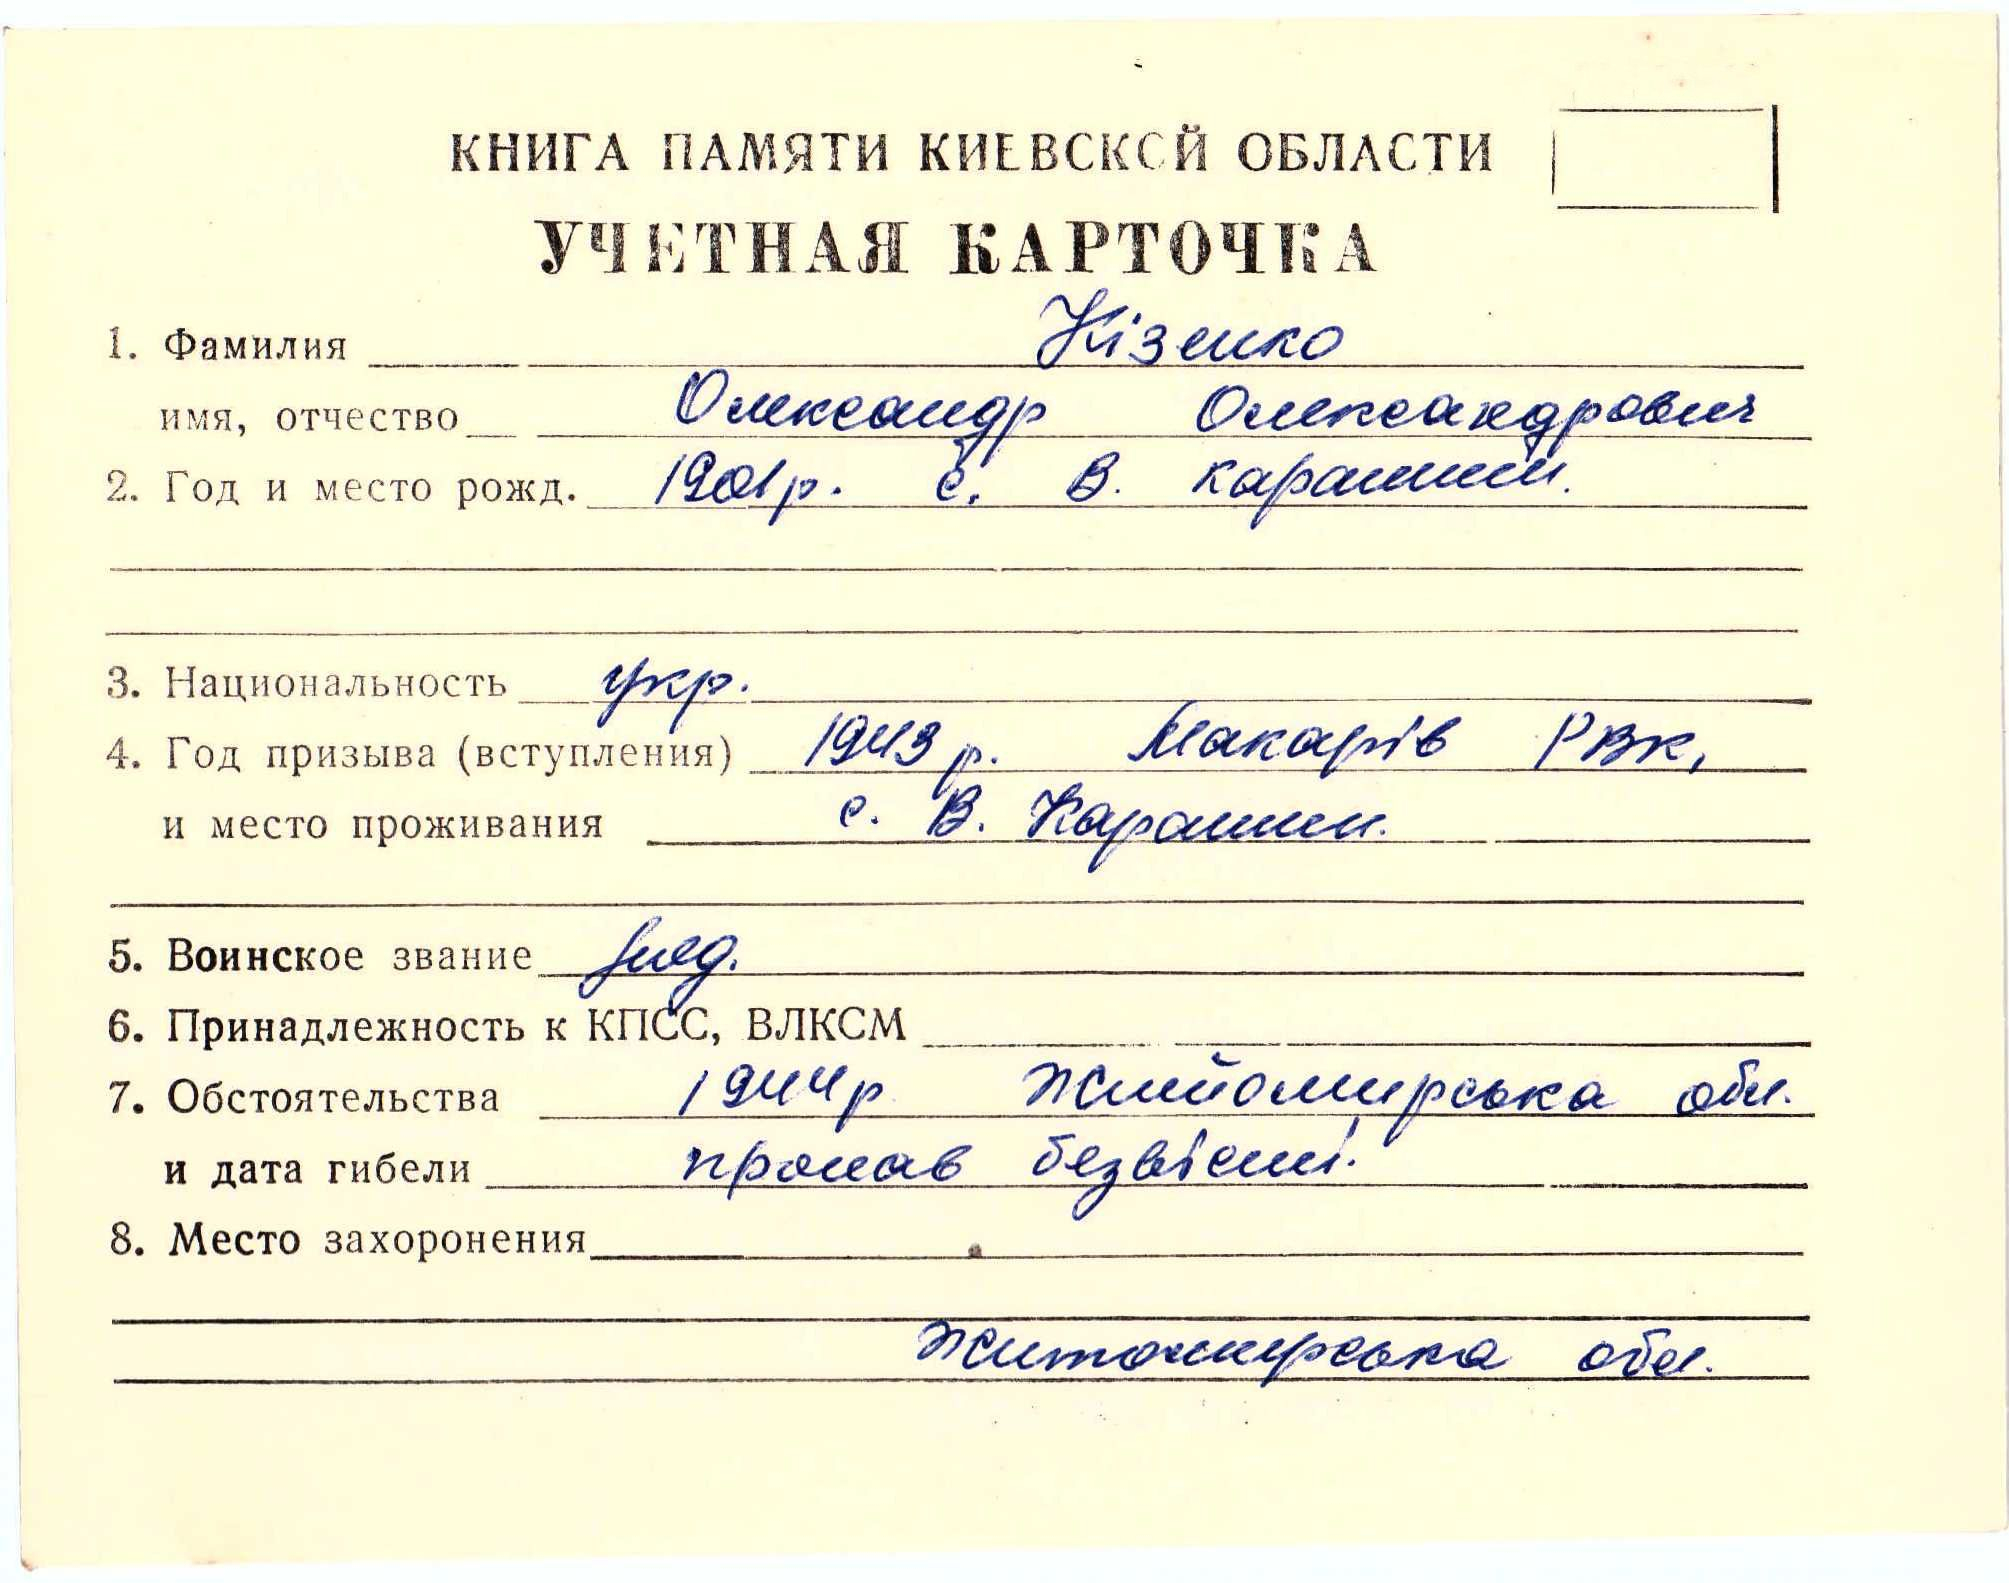 КНИГА ПАМЯТИ КИЕВСКОЙ ОБЛАСТИ
УЧЕТНАЯ КАРТОЧКА
1. Фамилия Кізенко
имя, отчество Олександр Олександрович
2. Год и место рожд. 1901р. с. В. Карашин.
3. Национальность укр.
4. Год призыва (вступления) 1943 р. Макарів РВК,
и место проживания с. В. Карашин.
5. Воинское звание ряд.
6. Принадлежность к КПСС, ВЛКСМ
7. Обстоятельства 1944р Житомирська обл.
и дата гибели пропав безвісті.
8. Место захоронения
Житомирська обл.